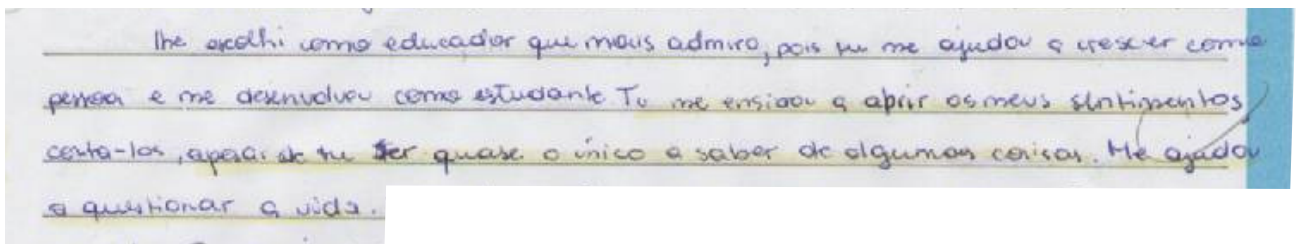 lhe escolhi como educador que mais admiro, pois tu me ajudou a crescer como
pessoa e me desenvolveu como estudante. Tu me ensinou a abrir os meus sentimentos
conta-los, apesar de tu ser quase o único a saber de algumas coisas. Me ajudou
a questionar a vida.